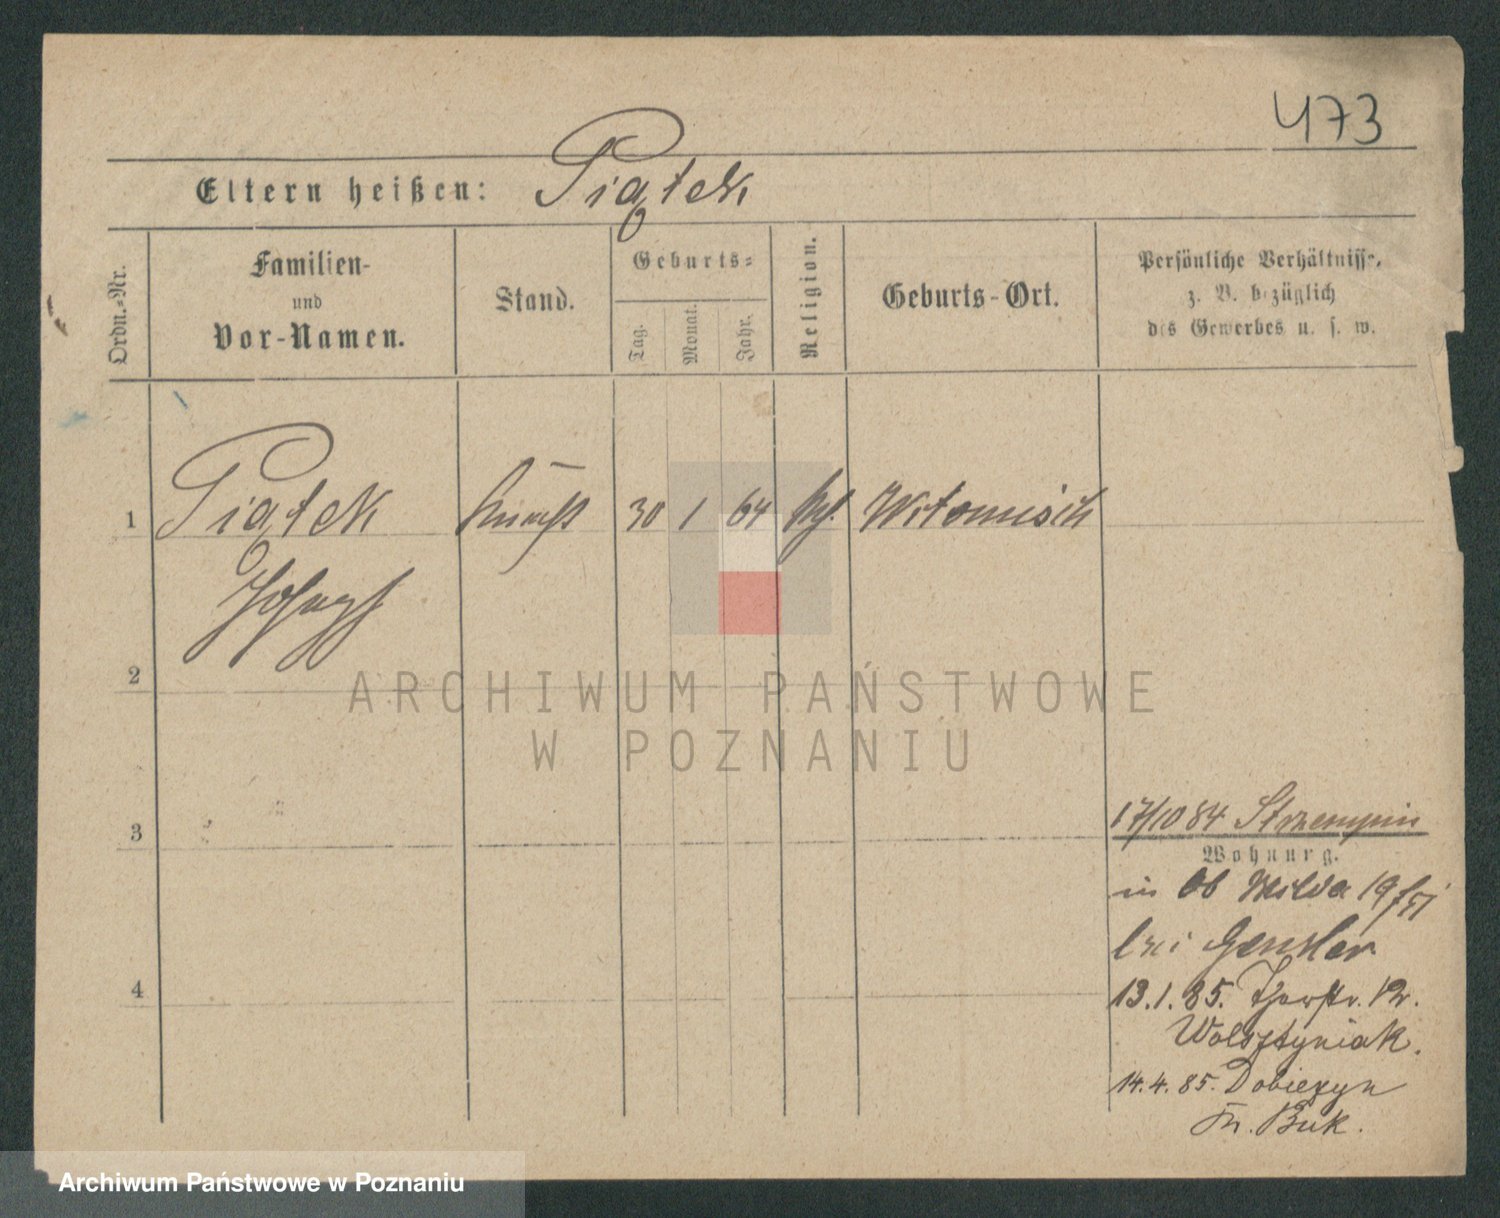 473
Eltern heißen: Piątek
Ordn.-Nr.
Familien-
und
Vor-Namen.
Stand.
Geburts-
Tag.
Monat.
Jahr.
Religion.
Geburts-Ort.
Persönliche Verhältnisse,
z. B. bezüglich
des Gewerbes u. s. w.
1 Piątek Knecht 30 1 64 Witomisch
Joseph
2
ARCHIWUM PAŃSTWOWE
W POZNANIU
3
17/10 84 Strzempin
Wohnung.
in Ob Wilda 19
bei Gensler
4
13.1.85. 12.
Wolsztyniak.
14.4.85. Dobiezyn
Buk.
Archiwum Państwowe w Poznaniu